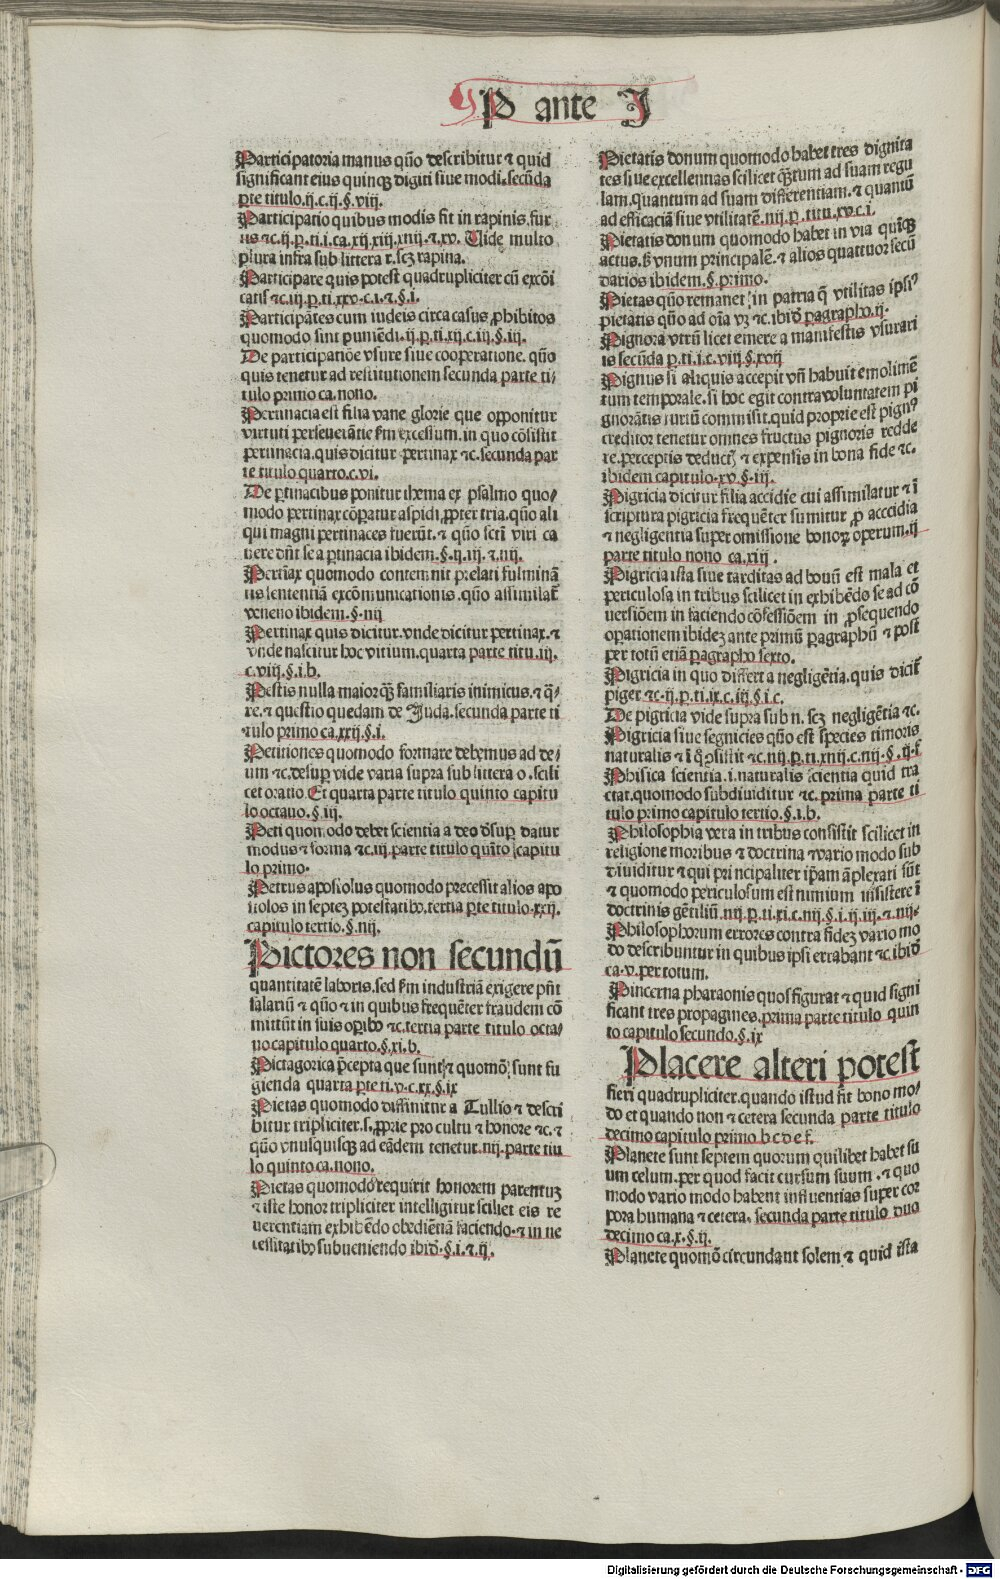 P ante J
Participatoria manus qũo describitur ⁊ quid
significant eius quinqꝫ digiti siue modi. secũda
ꝑte titulo.ij.c.ij.§.viij.
Participatio quibus modis fit in rapinis.fur
tis ⁊c.ij.ꝑ.ti.i.ca.xij.xiij.xiiij.⁊.xv. Uide multo
plura infra sub littera r.scꝫ rapina.
Participare quis potest quadrupliciter cũ excõi
catis ⁊c.iij.ꝑ.ti.xxv.c.i.⁊.§.i.
Participãtes cum iudeis circa casus ꝓhibitos
quomodo sint puniẽdi.ij.ꝑ.ti.xij.c.iij.§.iij.
De participatiõe vsure siue cooperatione. qũo
quis tenetur ad restitutionem secunda parte ti⸗
tulo primo ca.nono.
Pertinacia est filia vane glorie que opponitur
virtuti perseuerãtie ẜm excessum.in quo cõsistit
pertinacia.quis dicitur pertinax ⁊c.secunda par
te titulo quarto.c.vi.
De ꝑtinacibus ponitur thema ex psalmo quo⸗
modo pertinax cõparatur aspidi ꝓpter tria.qũo ali
qui magni pertinaces fuerũt.⁊ qũo scti viri ca
uere dñt se a ꝑtinacia ibidem.§.ij.iij.⁊.iiij.
Pertiax quomodo contemnit prelati fulminã
tis sententiã excõmunicationis.qũo assimilat̃
veneno ibidem.§.iiij
Pertinax quis dicitur.vnde dicitur pertinax.⁊
vnde nascitur hoc vitium.quarta parte titu.iij.
c.viij.§.i.b.
Pestis nulla maior qꝫ familiaris inimicus.⁊ q̃⸗
re.⁊ questio quedam de Juda.secunda parte ti
tulo primo ca.xxij.§.i.
Petitiones quomodo formare debemus ad de⸗
um ⁊c.desuꝑ vide varia supra sub littera o.scili
cet oratio.Et quarta parte titulo quinto capitu
lo octauo.§.iij.
Peti quomodo debet scientia a deo ⁊ desuꝑ datur
modus ⁊ forma ⁊c.iij.parte titulo quĩto capitu
lo primo.
Petrus apostolus quomodo precessit alios apo
stolos in septeꝫ potestatibꝰ.tertia ꝑte titulo.xxij.
capitulo tertio.§.iiij.
Pictores non secundũ
quantitatẽ laboris.sed ẜm industriã exigere pñt
salariũ ⁊ qũo ⁊ in quibus frequẽter fraudem cõ
mittũt in suis oꝑibꝰ ⁊c.tertia parte titulo octa⸗
uo capitulo quarto.§.xi.b.
Pictagorica p̃cepta que sunt ⁊ quomõ sunt fu
gienda quarta ꝑte ti.v.c.xx.§.ix
Pietas quomodo diffinitur a Tullio ⁊ descri
bitur tripliciter.s.ꝓprie pro cultu ⁊ honore ⁊c.⁊
qũo vnusquisqꝫ ad eãdem tenetur.iiij.parte titu
lo quinto ca.nono.
Pietas quomodo requirit honorem parentuꝫ
⁊ iste honor tripliciter intelligitur scilicet eis re
uerentiam exhibẽdo obediẽtiã faciendo.⁊ in ne
cessitatibꝰ subueniendo ibid̃.§.i.⁊.ij.
Pietatis donum quomodo habet tres dignita
tes siue excellentias scilicet quãtum ad suam regu
lam.quantum ad suam differentiam.⁊ quantũ
ad efficaciã siue vtilitatẽ.iiij.ꝑ.titu.xv.c.i.
Pietatis donum quomodo habet in via quĩqꝫ
actus.ẜ vnum principalẽ.⁊ alios quattuor secũ
darios ibidem.§.primo.
Pietas qũo remanet in patria q̃ vtilitas ipsiꝰ
pietatis qũo ad oĩa vꝫ ⁊c.ibid̃ paragrapho.ij.
Pignora vtrũ licet emere a manifestis vsurari
is secũda ꝑ.ti.i.c.viij.§.xvij
Pignus si aliquis accepit vñ habuit emolimẽ
tum temporale.si hoc egit contra voluntatem pi
gnorãtis furtũ commisit.quid proprie est pignꝰ
creditor tenetur omnes fructus pignoris redde
re.perceptis deductis ⁊ expensis in bona fide ⁊c.
ibidem capitulo.xv.§.iij.
Pigricia dicitur filia accidie cui assimilatur ⁊ ĩ
scriptura pigricia frequẽter sumitur ꝓ accidia
⁊ negligentia super omissione bonoꝝ operum.ij
parte titulo nono ca.xiij.
Pigricia ista siue tarditas ad bonũ est mala et
periculosa in tribus scilicet in exhibẽdo se ad cõ
uersiõem in faciendo cõfessiõem in ꝓsequendo
oꝑationem ibideꝫ ante primũ ꝑagraphũ ⁊ post
per totũ etiã ꝑagrapho sexto.
Pigricia in quo differt a negligẽtia.quis dicit̃
piger ⁊c.ij.ꝑ.ti.ix.c.iij.§.i.c.
De pigricia vide supra sub n.scꝫ negligẽtia ⁊c.
Pigricia siue segnicies qũo est species timoris
naturalis ⁊ ĩ q̊ ꝯsistit ⁊c.iiij.ꝑ.ti.xiiij.c.iiij.§.ij.f
Phisica scientia.i.naturalis scientia quid tra
ctat.quomodo subdiuiditur ⁊c.prima parte ti
tulo primo capitulo tertio.§.i.b.
Philosophia vera in tribus consistit scilicet in
religione moribus ⁊ doctrina ⁊ vario modo sub
diuiditur ⁊ qui principaliter ip̃am ãplexati sũt
⁊ quomodo periculosum est nimium insistere ĩ
doctrinis gẽtiliũ.iiij.ꝑ.ti.xi.c.iiij.§.i.ij.iij.⁊.iiij.
Philosophorum errores contra fideꝫ vario mo
do describuntur in quibus ipsi errabant ⁊c.ibid̃
ca.v.per totum.
Pincerna pharaonis quos figurat ⁊ quid signi
ficant tres propagines.prima parte titulo quin
to capitulo secundo.§.ix
Placere alteri potest
fieri quadrupliciter.quando istud fit bono mo⸗
do et quando non ⁊ cetera secunda parte titulo
decimo capitulo primo b c d e f.
Planete sunt septem quorum quilibet habet su
um celum.per quod facit cursum suum.⁊ quo
modo vario modo habent influentias super cor
pora humana ⁊ cetera.secunda parte titulo duo
decimo ca.x.§.ij.
Planete quomõ circundant solem ⁊ quid ista
Digitalisierung gefördert durch die Deutsche Forschungsgemeinschaft - DFG